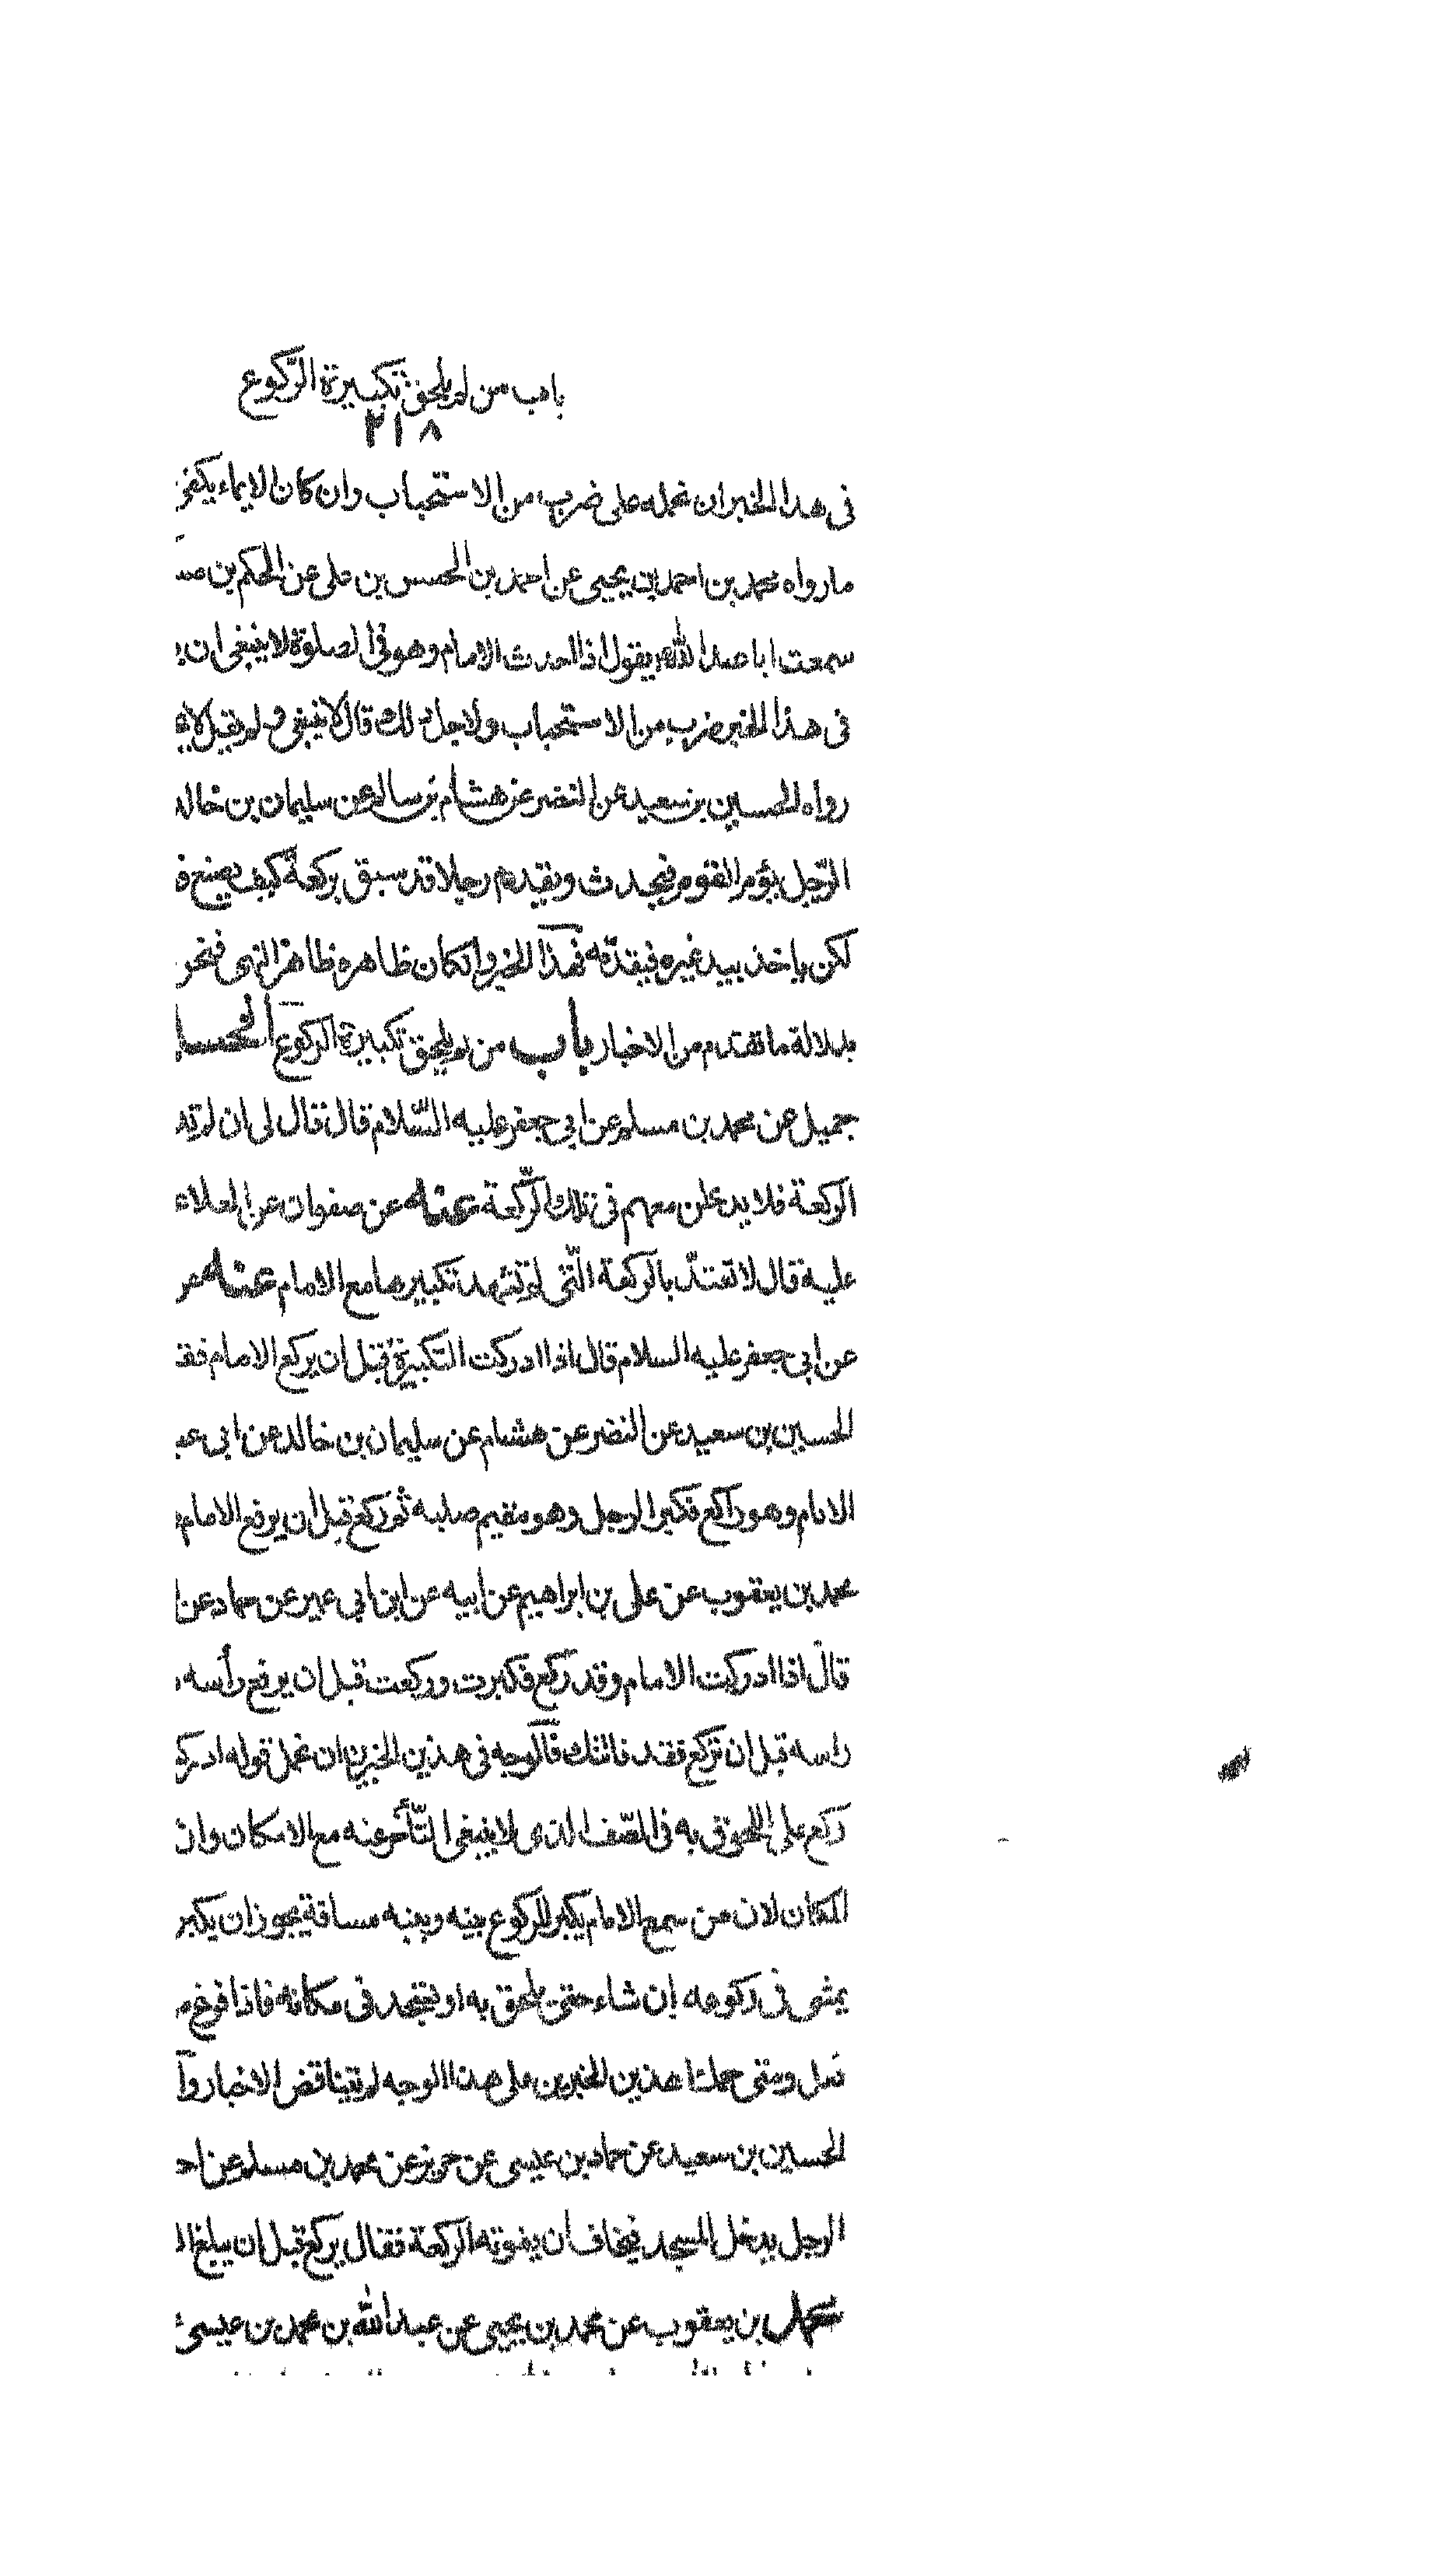 باب من لم يلحق تكبيرة الركوع
٢١٨
فى هذا الخبر ان نحمله على ضرب من الاستحباب وان كان الايماء يكفى
ما رواه محمد بن احمد بن يحيى عن احمد بن الحسن بن على عن الحكم بن
سمعت ابا عبد الله ع يقول اذا احدث الامام وهو فى الصلوة لا ينبغى ان
فى هذا الخبر ضرب من الاستحباب ولاجل ذلك قال لا ينبغى ولم يقل
رواه الحسين بن سعيد عن النضر عن هشام بن سالم عن سليمان بن خالد
الرّجل يؤم القوم فيحدث ويقدم رجلا قد سبق بركعة كيف يصنع
لكن ياخذ بيد غيره فيقدّمه فهذا الخبر وان كان ظاهره ظاهر النهى فنحن
بدلالة ما تقدم من الاخبار باب من لم يلحق تكبيرة الركوع الحسين
جميل عن محمد بن مسلم عن ابى جعفر عليه السّلام قال قال لى ان لم
الركعة فلا تدخلن معهم فى تلك الرّكعة عنه عن صفوان عن العلاء
عليه قال لا تعتدّ بالركعة الّتى لم تشهد تكبيرها مع الامام عنه عن
عن ابى جعفر عليه السلام قال اذا ادركت التكبيرة قبل ان يركع الامام فقد
الحسين بن سعيد عن النضر عن هشام عن سليمان بن خالد عن ابى
الامام وهو راكع فكبر الرجل وهو مقيم صلبه ثم ركع قبل ان يرفع الامام
محمد بن يعقوب عن على بن ابراهيم عن ابيه عن ابن ابى عمير عن حماد عن
قال اذا ادركت الامام وقد ركع فكبرت وركعت قبل ان يرفع رأسه
راسه قبل ان تركع فقد فاتتك فالوجه فى هذين الخبرين ان نحمل قوله
ركع على اللحوق به فى الصّف الذى لا ينبغى التّأخر عنه مع الامكان وان
المكان لان من سمع الامام يكبر للركوع بينه وبينه مسافة يجوز ان يكبر
يمشى فى ركوعه ان شاء حتى يلحق به او يسجد فى مكانه فاذا فرغ
ومتى حملنا هذين الخبرين على هذا الوجه لم تتناقض الاخبار
الحسين بن سعيد عن حماد بن عيسى عن حريز عن محمد بن مسلم عن
الرجل يدخل المسجد فيخاف ان يفوته الركعة فقال يركع قبل ان يبلغ
محمد بن يعقوب عن محمد بن يحيى عن عبد الله بن محمد بن عيسى